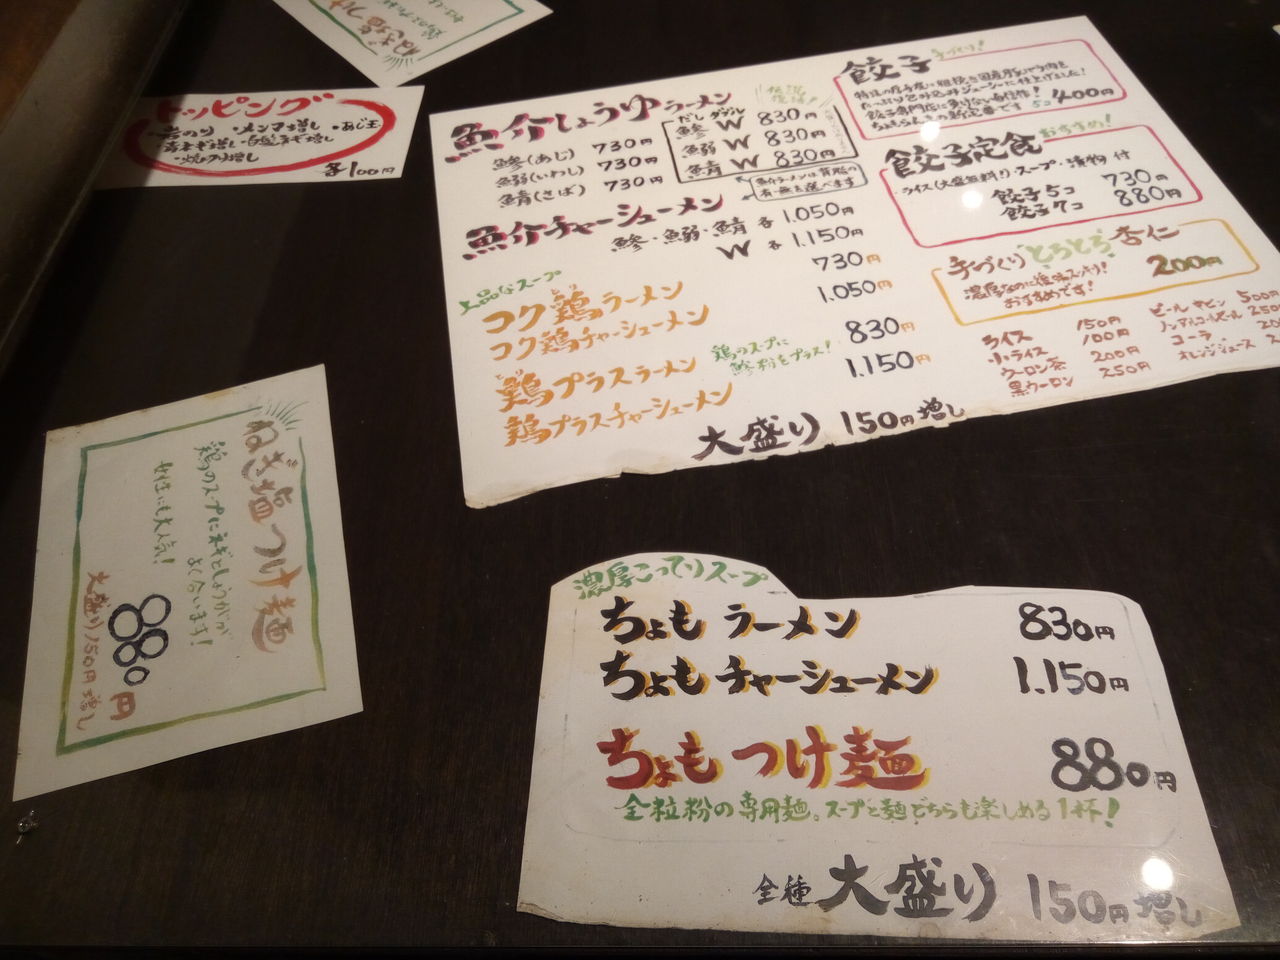 ねぎ塩つけ
トッピング
・岩のり ・メンマ増し ・あじ玉
・焼のり増し
各100円
魚介しょうゆラーメン
鯵(あじ) 730円
鰯(いわし) 730円
鯖(さば) 730円
だし ダブル
鯵 W 830円
鰯 W 830円
鯖 W 830円
魚介ラーメンは背脂の
有・無を選べます
魚介チャーシューメン
鯵・鰯・鯖 各 1.050円
W 各 1.150円
上品なスープ
コク鶏ラーメン 730円
コク鶏チャーシューメン 1.050円
鶏のスープに
鯵粉をプラス!
鶏プラスラーメン 830円
鶏プラスチャーシューメン 1.150円
大盛り 150円増し
餃子 手づくり!
5コ 400円
餃子定食 おすすめ!
・ライス(大盛無料!)・スープ・漬物 付
餃子5コ 730円
餃子7コ 880円
手づくりとろとろ杏仁
濃厚なのに後味スッキリ!
おすすめです! 200円
ライス 150円
小ライス 100円
ウーロン茶 200円
黒ウーロン 250円
ビール 中ビン 500円
ノンアルコールビール 250
コーラ
オレンジジュース
ねぎ塩つけ麺
鶏のスープにネギとしょうがが
よく合います!
女性にも大人気!
880円
大盛り150円増し
濃厚こってりスープ
ちょもラーメン 830円
ちょもチャーシューメン 1.150円
ちょもつけ麺 880円
全粒粉の専用麺。スープと麺どちらも楽しめる1杯!
全種 大盛り 150円増し